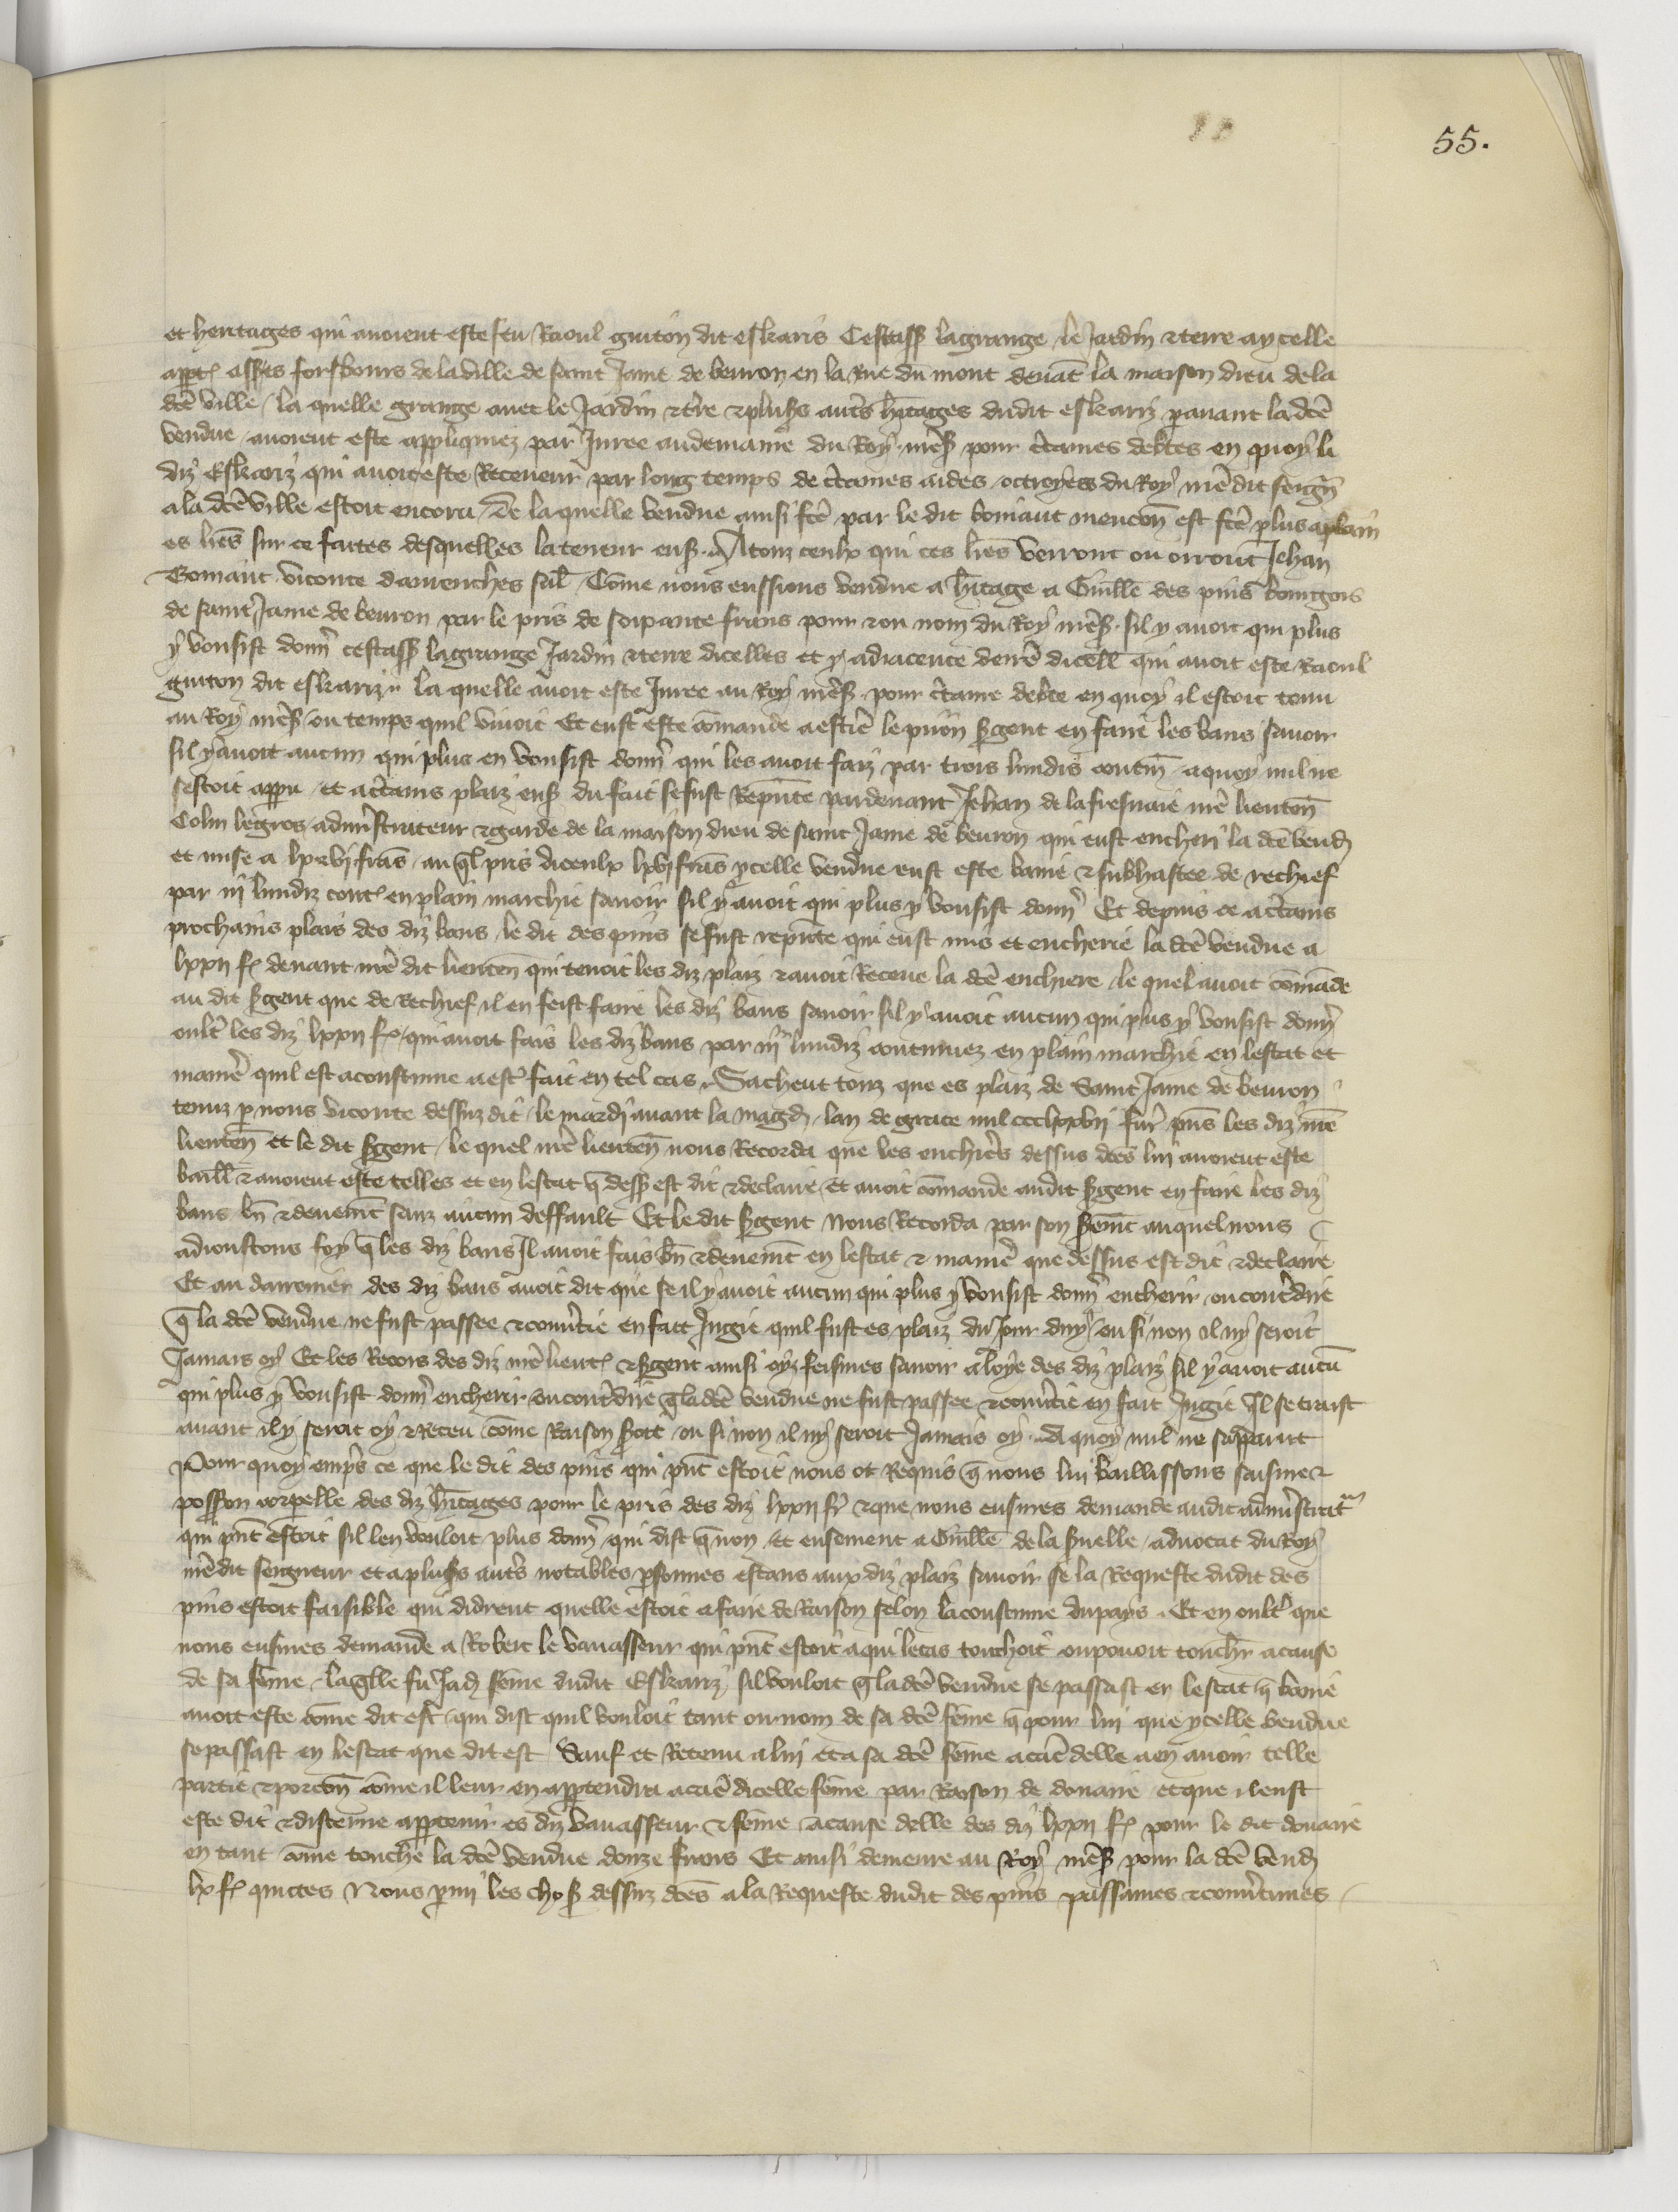 55.
et heritages qui avoient este feu Raoul guiton dit eskaris Cestass lagrange le Jardin & terre aycelle
appt assis forsbours de la ville de saint Jame de beuron en la rue du mont devāt la maison dieu de la
dcē ville / la quelle grange avec le Jardin & tr̄e & plusrs autrs hītages dudit eskariz pavant la dcē
vendue / avoient este appliquiez par Juree audemaine du Roy nr̄es pour ctaines debtes en quoy li
diz Eskariz qui avoit este Receveur par long temps de ctaines aides octroyees du Roy nr̄e dit seign
a la dcē ville estoit encoru / De la quelle vendue ainsi fcē par le dit bomaut mencon est fcē plus aplain
es lrēs sur ce faites desquelles la teneur ens. A touz ceulx qui ces lrēs verront ou orront Jehan
Bomaut viconte davrenches sal. Cōme nous eussions vendue a hītage a Guillē des pins bourgois
de saint Jame de beuron par le pris de soixante frans pour & ou nom du Roy nr̄es. sil y avoit qui plus
y vousist donn cestass lagrange Jardin & terre dicelles et y adiacence derrē dicell qui avoit este Raoul
guiton dit eskariz. la quelle avoit este Juree au Roy nr̄es pour ctaine debte en quoy il estoit tenu
au Roy nr̄es / ou temps quil vivoit Et eust este cōmande a le prion sgent en faire les bans savoir
sil y avoit aucun qui plus en vousist donn qui les avoit faiz par trois lundis contin / a quoy nul ne
sestoit appu / et a ctains plaiz ens du fait se fust Repnte pardevant Jehan de la fresnaie nr̄e lieuten
Colin legros / adminstrateur & garde de la maison dieu de saint Jame de beuron qui eust encheri la dcē vend
et mise a lxvj frās / au ql pris diceulx lxvj frās ycelle vendue eust este banie & subhastee de rechief
par iij lundiz cont en plain marchie savoir sil y avoit qui plus y vousist donn Et depuis ce a ctains
prochains plais des diz bans / le dit des pins se fust repnte qui eust mis et encherie la dcē vendue a
lxxij f devant nr̄e dit lieuten qui tenoit les diz plaiz & avoit Receue la dcē enchiere / le quel avoit cōmāde
au dit sgent que de Rechief il en feist faire les diz bans savoir sil y avoit aucun qui plus y vousist donn
oult les diz lxxij f / qui avoit fais les diz bans par iij lundiz continuez en plain marchie en lestat et
manie quil est acoustume a estre fait en tel cas. Sachent touz que es plaiz de Saint Jame de beuron
tenuz p nous viconte dessuz dit / le mardi avant la magd / lan de grace mil ccclxxvij furent pns les diz nr̄e
lieuten et le dit sgent / le quel nr̄e lieuten nous Recorda que les enchiers dessus dces lui avoient este
baill & avoient este telles et en lestat q dess est dit & declaire / et avoit cōmande audit sgent en faire les diz
bans bn & deuement sanz aucun deffault Et le dit sgent nous Recorda par son serment auquel nous
adioustons foy q les diz bans Il avoit fais bn & deuement en lestat & manie que dessus est dit & declaire
Et au darrenier des diz bans avoit dit que se il y avoit aucun qui plus y vousist donn encherir ou contredire
q la dcē vendue ne fust passee & convtie en fait Jugie quil fust es plaiz du Jour duy / ou si non il ny seroit
Jamais oy Et les Recors des diz nr̄e lieut & sgent ainsi oyz feismes savoir a loye des diz plaiz sil y avoit aucū
qui plus y vousist donn encherir ou contredire q la dcē vendue ne fust passee & convtie en fait Jugie Il se traist
avant il y seroit oy & Receu cōme Raison seroit ou si non il ny seroit Jamais oy. A quoy nul ne sapparut
Pour quoy emprs ce que le dit des pins qui pnt estoit nous ot Requis q nous lui baillissons saisine &
posson corpelle des diz hītages pour le pris des diz lxxij fr & que nous eusmes demande audit adminstrat
qui pnt estoit sil len vouloit plus donn / qui dist q non / et ensement a Guillē de la Suelle / advocat du Roy
nr̄e dit seigneur et a plusrs autrs notables psonnes estans aux diz plaiz savoir se la Requeste dudit des
pins estoit faisible qui didrent quelle estoit a faire de Raison selon la coustume du pays. Et en oult que
nous eusmes demande a Robert le vavasseur qui pnt estoit a qui le cas touchoit ou povoit touchr a cause
de sa fēme / laqlle fu Jadiz fēme dudit Eskariz / sil vouloit q la dcē vendue se passast en lestat q banie
avoit este cōme dit est / qui dist quil vouloit tant ou nom de sa dcē fēme q pour lui que ycelle vendue
se passast en lestat que dit est Sauf et Retenu a lui et a sa dcē fēme a caē delle a en avoir telle
partie & porcōn cōme il leur en apptendra a caē dicelle fēme par Raison de douaire et que il eust
este dit & discerne appteenir es diz vavasseur & fēme a cause delle des diz lxxij f pour le dit douaire
en tant cōme touche la dcē vendue douze frans Et ainsi demeure au Roy nr̄es pour la dcē vend
lx f quictes Nous pmi les choss dessuz dces a la Requeste dudit des pins passames & convtimes